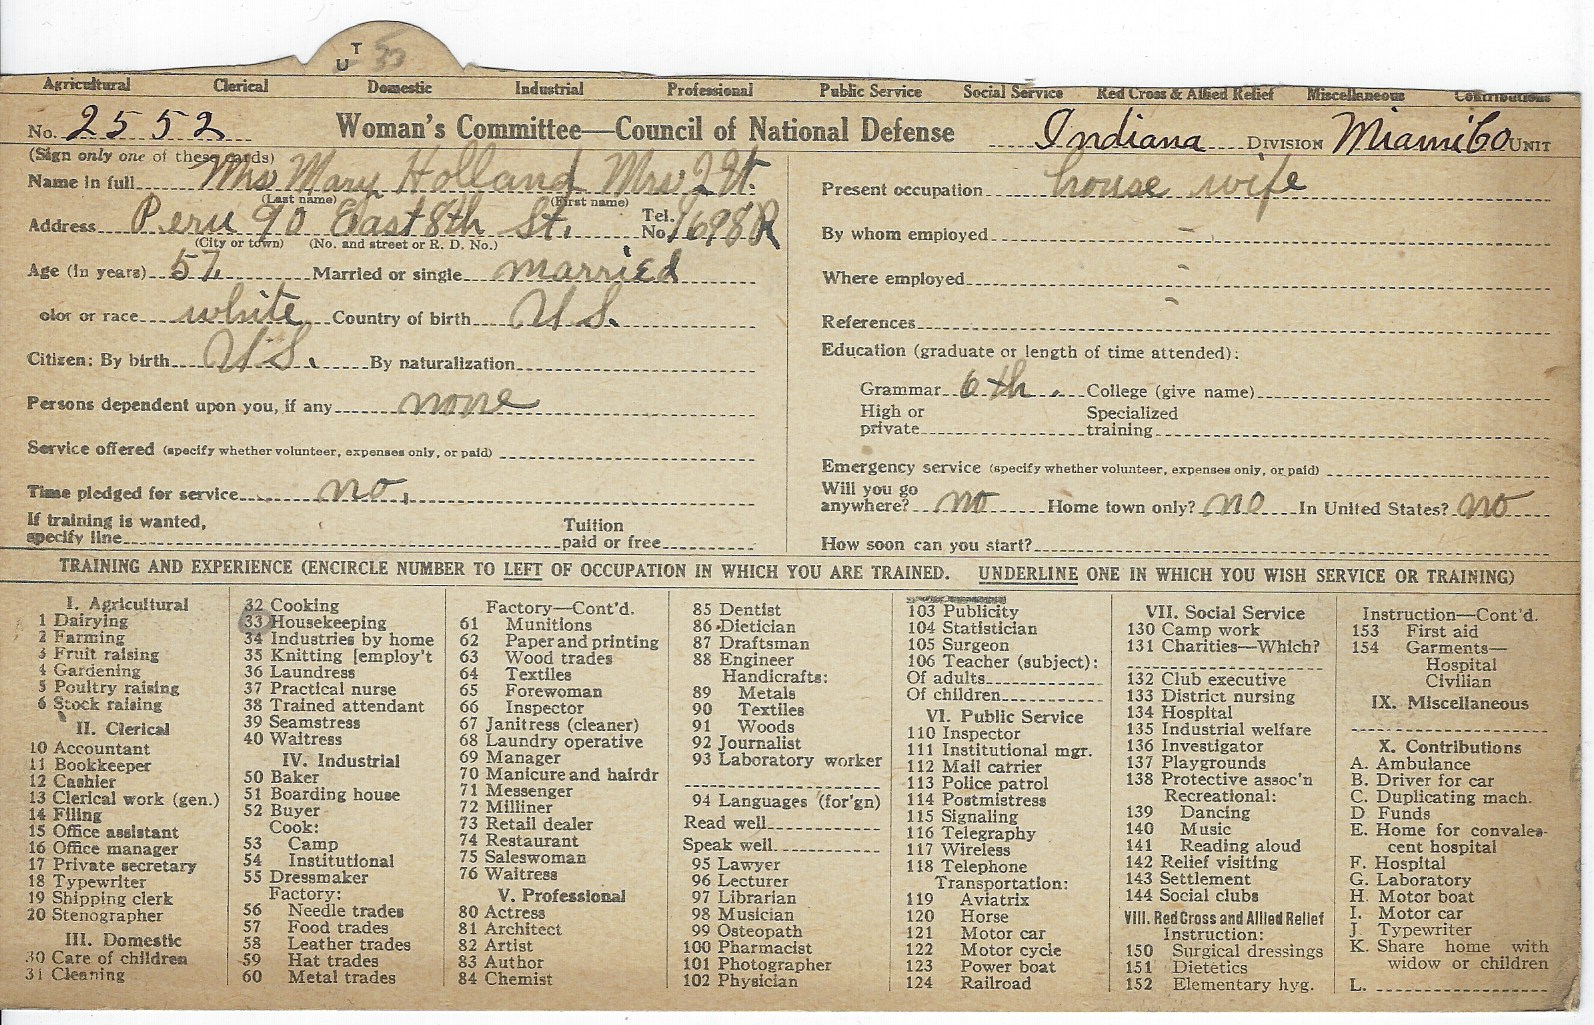 T
U 33
Agricultural Clerical Domestic Industrial Professional Public Service Social Service Red Cross & Allied Relief Miscellaneous Contributions
No. 2552 Woman's Committee—Council of National Defense Indiana DIVISION Miami Co UNIT
(Sign only one of these cards)
Name in full Mrs Mary Holland Mrs
(Last name) (First name)
Address Peru 90 East 8th St. Tel. No. 1698R
(City or town) (No. and street or R. D. No.)
Age (in years) 57 Married or single married
olor or race white Country of birth U S.
Citizen: By birth U S. By naturalization
Persons dependent upon you, if any none
Service offered (specify whether volunteer, expenses only, or paid)
Time pledged for service no,
If training is wanted, specify line Tuition paid or free
Present occupation house wife
By whom employed -
Where employed -
References -
Education (graduate or length of time attended):
Grammar 6th. College (give name)
High or private Specialized training
Emergency service (specify whether volunteer, expenses only, or paid)
Will you go anywhere? no Home town only? no In United States? no
How soon can you start?
TRAINING AND EXPERIENCE (ENCIRCLE NUMBER TO LEFT OF OCCUPATION IN WHICH YOU ARE TRAINED. UNDERLINE ONE IN WHICH YOU WISH SERVICE OR TRAINING)
I. Agricultural
1 Dairying
2 Farming
3 Fruit raising
4 Gardening
5 Poultry raising
6 Stock raising
II. Clerical
10 Accountant
11 Bookkeeper
12 Cashier
13 Clerical work (gen.)
14 Filing
15 Office assistant
16 Office manager
17 Private secretary
18 Typewriter
19 Shipping clerk
20 Stenographer
III. Domestic
30 Care of children
31 Cleaning
32 Cooking
33 Housekeeping
34 Industries by home
35 Knitting [employ't
36 Laundress
37 Practical nurse
38 Trained attendant
39 Seamstress
40 Waitress
IV. Industrial
50 Baker
51 Boarding house
52 Buyer
Cook:
53 Camp
54 Institutional
55 Dressmaker
Factory:
56 Needle trades
57 Food trades
58 Leather trades
59 Hat trades
60 Metal trades
Factory—Cont'd.
61 Munitions
62 Paper and printing
63 Wood trades
64 Textiles
65 Forewoman
66 Inspector
67 Janitress (cleaner)
68 Laundry operative
69 Manager
70 Manicure and hairdr
71 Messenger
72 Milliner
73 Retail dealer
74 Restaurant
75 Saleswoman
76 Waitress
V. Professional
80 Actress
81 Architect
82 Artist
83 Author
84 Chemist
85 Dentist
86 Dietician
87 Draftsman
88 Engineer
Handicrafts:
89 Metals
90 Textiles
91 Woods
92 Journalist
93 Laboratory worker
94 Languages (for'gn)
Read well
Speak well
95 Lawyer
96 Lecturer
97 Librarian
98 Musician
99 Osteopath
100 Pharmacist
101 Photographer
102 Physician
103 Publicity
104 Statistician
105 Surgeon
106 Teacher (subject):
Of adults
Of children
VI. Public Service
110 Inspector
111 Institutional mgr.
112 Mail carrier
113 Police patrol
114 Postmistress
115 Signaling
116 Telegraphy
117 Wireless
118 Telephone
Transportation:
119 Aviatrix
120 Horse
121 Motor car
122 Motor cycle
123 Power boat
124 Railroad
VII. Social Service
130 Camp work
131 Charities—Which?
132 Club executive
133 District nursing
134 Hospital
135 Industrial welfare
136 Investigator
137 Playgrounds
138 Protective assoc'n
Recreational:
139 Dancing
140 Music
141 Reading aloud
142 Relief visiting
143 Settlement
144 Social clubs
VIII. Red Cross and Allied Relief
Instruction:
150 Surgical dressings
151 Dietetics
152 Elementary hyg.
Instruction—Cont'd.
153 First aid
154 Garments—
Hospital
Civilian
IX. Miscellaneous
X. Contributions
A. Ambulance
B. Driver for car
C. Duplicating mach.
D Funds
E. Home for convales-
cent hospital
F. Hospital
G. Laboratory
H. Motor boat
I. Motor car
J. Typewriter
K. Share home with
widow or children
L.